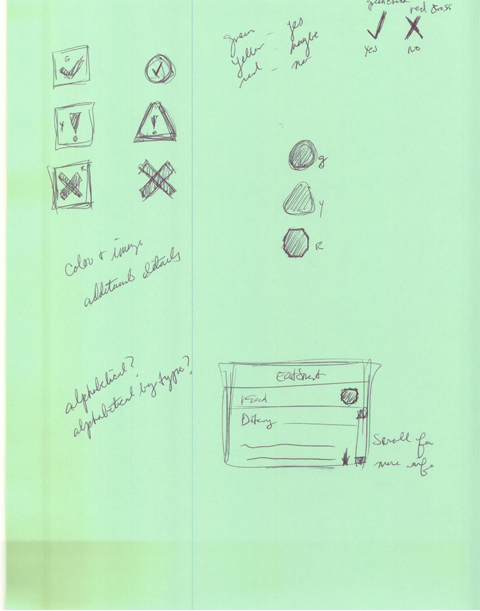 red cross
yes
no
green - yes
yellow - maybe
red - no
G
Y
R
g
y
R
color + image
additional details
alphabetical?
alphabetical by type?
EatSmart
Food
Scroll for
more info